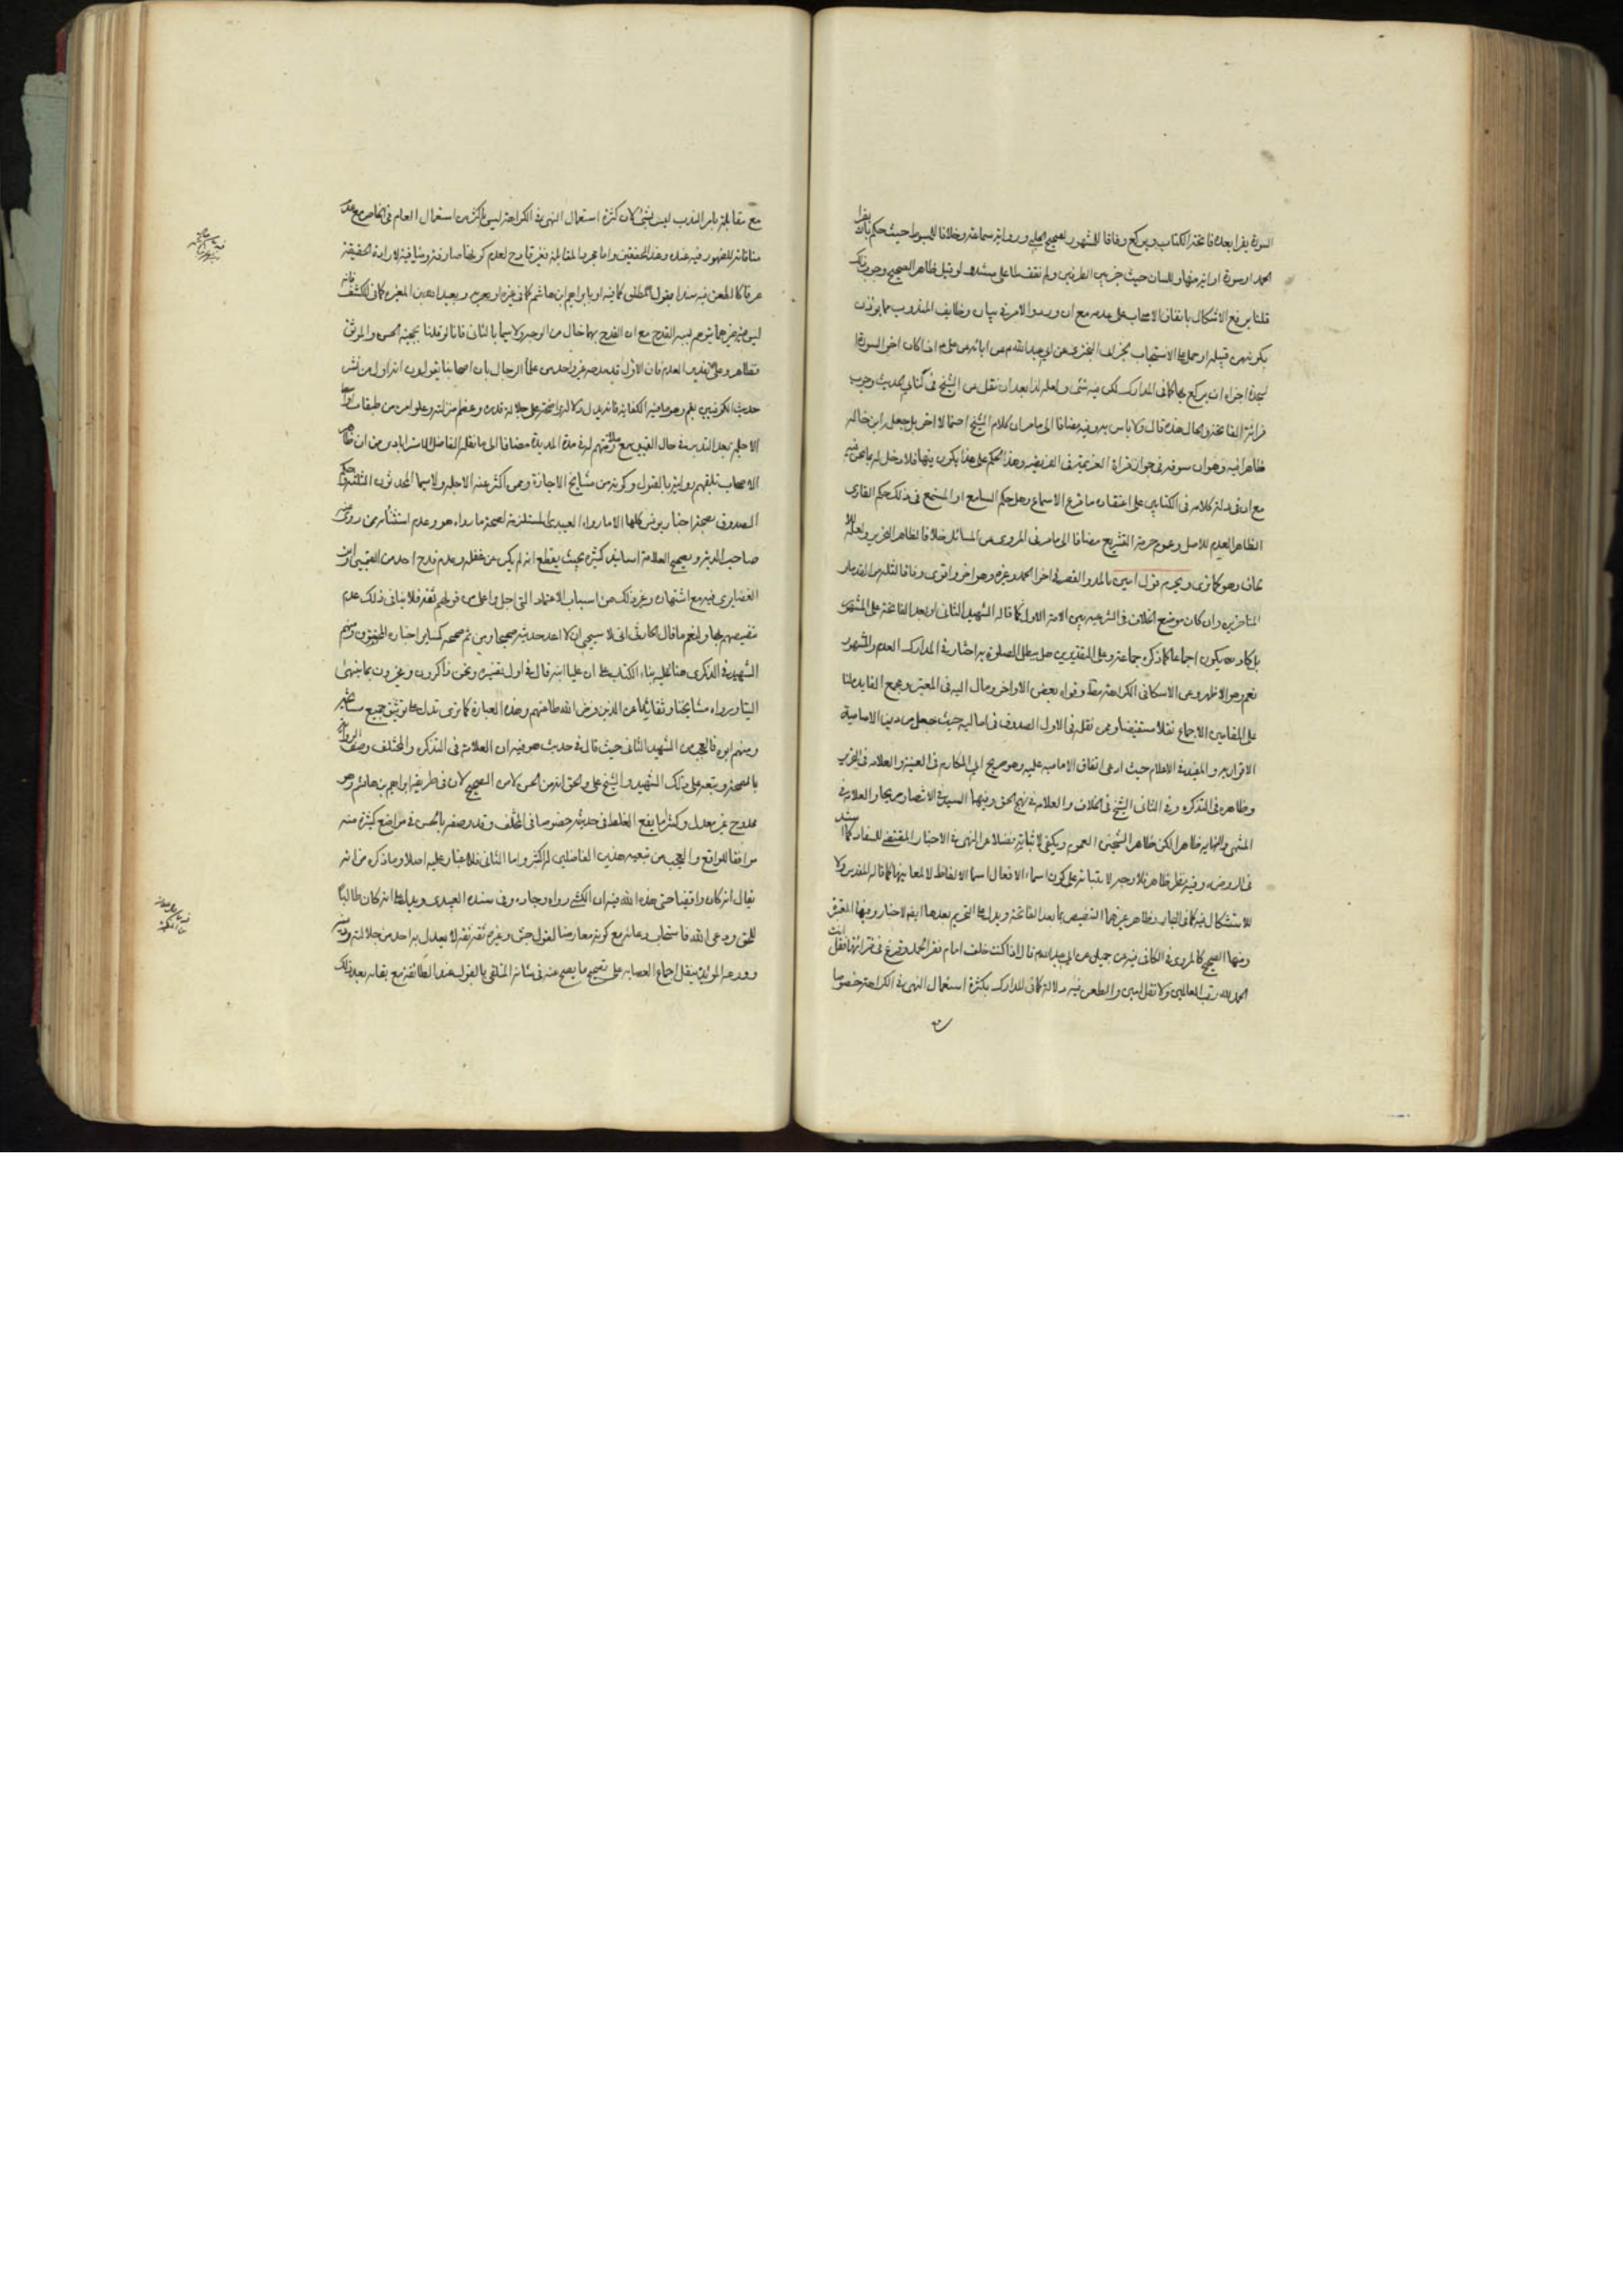 السورة يقرأ بعده فاتحة الكتاب ويركع وفاقا للمشهور لصحيح الحلبي ورواية سماعة وخلافا للمبسوط حيث حكم بأنه يقرأ
الحمد او سورة او اية منها وللسان حيث خير بين الطرفين ولم نقف لها على مستند لو قيل ظاهر الصحيح وجوب ذلك
قلنا يرفع الاشكال باتفاق الاصحاب على عدمه مع ان ورود الامر في بيان وظايف المندوب مما يؤذن
بكونه من قبيله او حمله على الاستحباب لخبر ابي البختري عن ابي عبد الله عن ابائه عن علي اذا كان اخر السورة
السجدة اجزاه ان يركع بها كما في المدارك لكن فيه شيء ولعله لذا بعد ان نقل عن الشيخ في كتابي الحديث وجوب
قرائة الفاتحة والحال هذه قال ولا باس به وفيه مضافا الى ما مر ان كلام الشيخ احتمالا اخر بل جعل ابن خاله
ظاهرا فيه وهو ان سوقه في جواز قراءة العزيمة في الفريضة وهذا الحكم على هذا يكون فيها فلا دخل له بما نحن فيه
مع ان في دلالة كلامه في الكتابين على اعتقاده ما فرع الاسماع وهل حكم السامع او المستمع في ذلك حكم القاري
الظاهر العدم للاصل وعموم حرمة التشريع مضافا الى ما مر في المروي عن المسائل خلافا لظاهر التحرير ولعله
كما ترى ويحرم قول امين بالمد والقصر في اخر الحمد وغيره وهو اخر واقوى وفاقا لثلة من القدماء
المتاخرين وان كان موضع الخلاف في الشرعية بين الامة الاول كما قاله الشهيد الثاني او بعد الفاتحة على المشهور
بل كاد يكون اجماعا كما ذكره جماعة وعلى التقديرين هل يبطل الصلوة به اختار في المدارك العدم والمشهور
نعم وهو الاظهر وعن الاسكافي الكراهة مطلقا وقواه بعض الاواخر ومال اليه في المعتبر ومجمع الفايدة لنا
على المقامين الاجماع نقلا مستفيضا وممن نقله في الاول الصدوق في اماليه حيث جعل من دين الامامية
الاقرار به والمفيد في الاعلام حيث ادعى اتفاق الامامية عليه وهو صريح ابي المكارم في الغنية والعلامة في التحرير
وظاهره في التذكرة وفي الثاني الشيخ في الخلاف والعلامة في نهج الحق وفيهما السيد في الانتصار صريحا والعلامة في
المنتهى والنهاية ظاهرا لكن ظاهر الشيخين العموم ويكفي لاثباته فضلا عن النهي في الاخبار المقتضي للفساد كما
في الروض وفيه نظر ظاهر فلا وجه لابتنائه على كون اسماء الافعال اسما للالفاظ لا لمعانيها كما قاله المقدس ولا
للاستشكال فيه كما في البحار وظاهر غيرهما التخصيص بما بعد الفاتحة ويدل على التحريم بعدها ايضا الاخبار وفيها المعتبر
ومنها الصحيح كالمروي في الكافي فيه عن جميل عن ابي عبد الله قال اذا كنت خلف امام فقرا الحمد وفرغ من قرائتها فقل انت
الحمد لله رب العالمين ولا تقل امين والطعن فيه دلالة كما في المدارك بكثرة استعمال النهي في الكراهة خصوصا
مع مقابلته بامر الندب ليس بشيء لان كثرة استعمال النهي في الكراهة ليس باكثر من استعمال العام في الخاص مع عدم
منافاته للظهور فيه عنده وعند المحققين واما مجرد المقابلة فغير قادح لعدم كونها صارفة ومنافية لارادة الحقيقة
عرفا كالطعن فيه سندا بقول مطلق كما فيه او بابراهيم بن هاشم كما في غيره او به وبعبد الله بن المغيرة كما في الكشف فانه
ليس فيه غيرهما يتوهم فيه القدح مع ان القدح بهما خال من الوجه ولا سيما بالثاني فانا لو قلنا بحجية الحسن والموثق
فظاهر وعلى تقدير العدم فان الاول قد مدحه غير واحد من علماء الرجال بان اصحابنا يقولون انه اول من نشر
حديث الكوفيين بقم وهو ما فيه الكفاية فانه يدل دلالة واضحة على جلالة قدره وعظم منزلته وعلو امره من طبقات
الاجلة بعد التدبر في حال القميين مع ملازمتهم له في مدة المديدة مضافا الى ما نقله الفاضل الاسترابادي من ان ظاهر
الاصحاب تلقيهم روايته بالقبول وكونه من مشايخ الاجازة وممن اكثر عنه الاجلة ولا سيما المحدثون الثلثة وحكم
الصدوق بصحة اخبار يونس كلها الا ما رواه العبيدي المستلزمة لصحة ما رواه هو وعدم استثنائه ممن روى عنه
صاحب النوادر وتصحيح العلامة اسانيد كثيرة بحيث يقطع انه لم يكن عن غفلة وعدم قدح احد من القميين وابن
الغضايري فيه مع اشتهاره وغير ذلك من اسباب الاعتماد التي اجل واعلى من قولهم ثقة فلا ينافي ذلك عدم
تنصيصهم بها ولنعم ما قال الحارثي اني لاستحيي ان لا اعد حديثه صحيحا ومن ثم صححه كسايرا خباره المحققون ومنهم
الشهيد في الذكرى هنا عليه بناء الكتاب على ان عليا ابنه قال في اول تفسيره ونحن ذاكرون ومخبرون بما ينتهى
الينا ورواه مشايخنا وثقاتنا عن الذين فرض الله طاعتهم وهذه العبارة كما ترى تدل على توثيق جميع مشايخه
ومنهم ابوه فالعجب من الشهيد الثاني حيث قال في حديث هو فيه ان العلامة في التذكرة والمختلف وصف الرواية
بالصحة وتبعه على ذلك الشهيد والشيخ علي والحق انه من الحسن لا من الصحيح لان في طريقه ابراهيم بن هاشم وهو
ممدوح غير معدل وكثيرا ما يقع الغلط في حديثه خصوصا في المختلف وقد وصفه بالحسن في مواضع كثيرة منه
موافقا للواقع والعجب من تبعية هذين الفاضلين له اكثر واما الثاني فلا غبار عليه اصلا وما ذكر من انه
يقال انه كان واقفيا حتى هداه الله فيه ان الكشي رواه وجاده وفي سنده العبيدي ويدل على انه كان طالبا
للحق ودعى الله فاستجاب دعائه مع كونه معارضا لقول جش وغيره ثقة ثقة لا يعدل به احد من جلالته ودينه
وورعه المؤيد بنقل اجماع العصابة على تصحيح ما يصح عنه في شانه المتلقى بالقبول عند الطائفة مع بقائه بعد ذلك